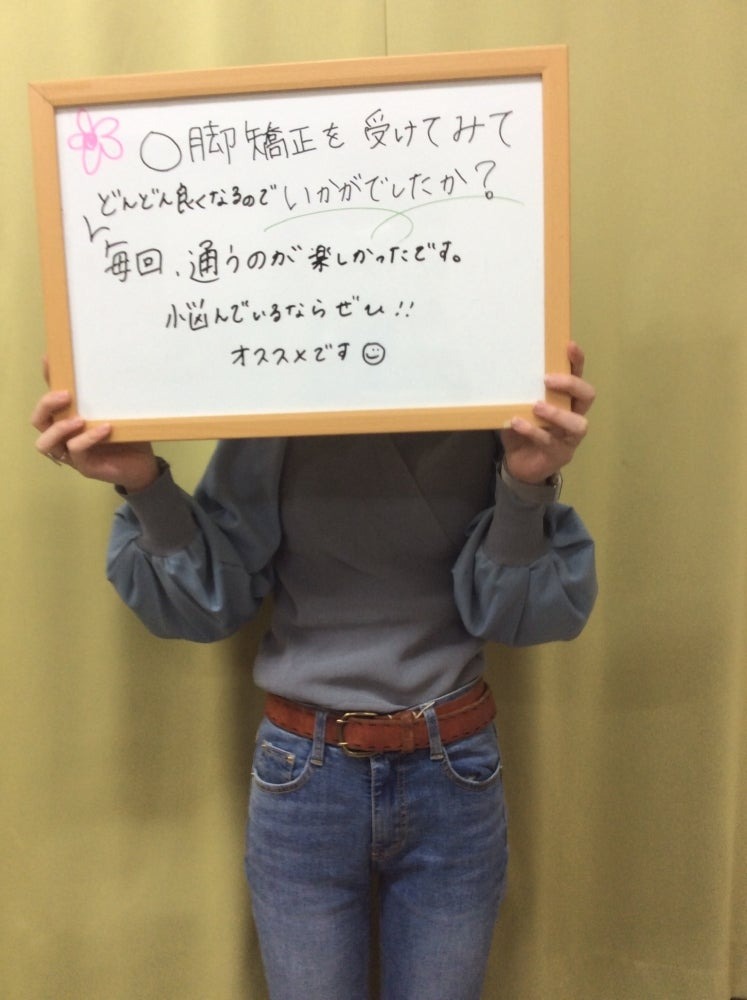 ○脚矯正を受けてみて
いかがでしたか?
どんどん良くなるので
毎回、通うのが楽しかったです。
悩んでいるならぜひ!!
オススメです☺